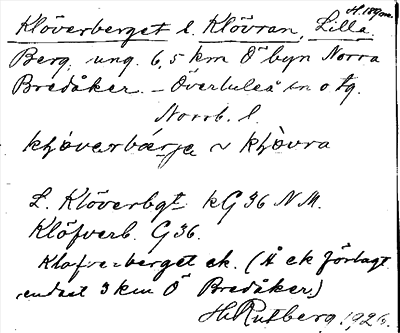 H. 189 m.
Klöverberget l. Klövran, Lilla
Berg, ung. 6,5 km Ö byn Norra
Bredåker. - Överluleå sn o tg.
Norrb. l.
L. Klöverbgt kG 36 N M.
Klöfverb. G 36.
Klöfverberget ek. (Å ek förlagt
endast 3 km Ö Bredåker.)
H. Rutberg. 1926.